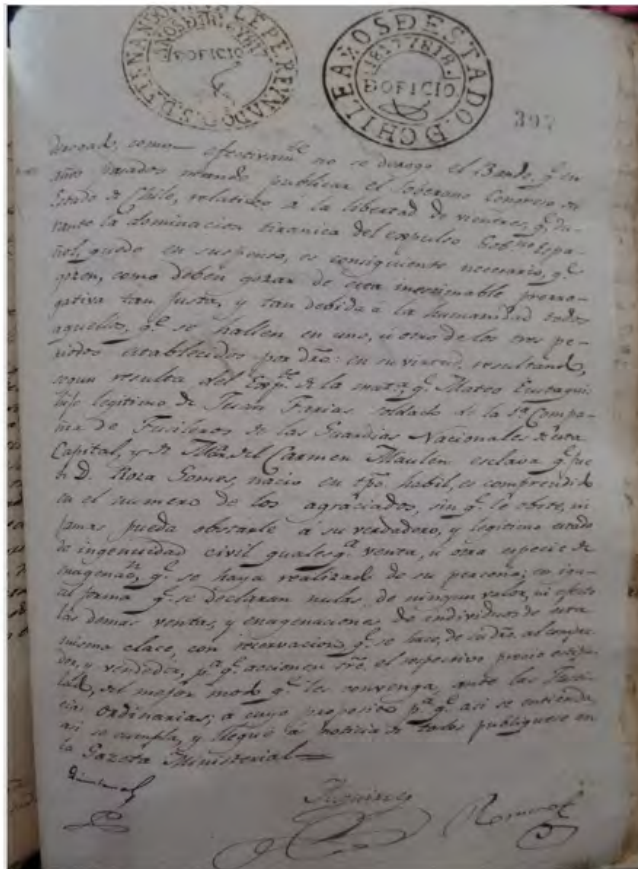 DEOFICIO
CHILE AÑOS DE ESTADO. D
1817 Y 1818.
DEOFICIO
392
derogado, como efectivamte no se derogo el Bando, q.e en
años pasados mandó publicar el Soberano Congreso
Estado de Chile, relativo á la libertad de vientres, q.e du-
rante la dominacion tiranica del expulso Gobno Espa-
ñol, quedo en suspenso, es consiguiente necesario, q.e
gozen, como deben gozar de esta inestimable prerro-
gativa tan justa, y tan debida á la humanidad todos
aquellos, q.e se hallen en uno, ú otro de los tres pe-
riodos establecidos por dro: en su virtud, resultando,
segun resulta del Exp.te de la mata q.e Mateo Eustaqui
hijo legitimo de Juan Farias soldado de la 1a Compa-
ñia de Fusileros de las Guardias Nacionales de esta
Capital, y de Ma del Carmen Maulen esclava q.e fue
de D. Roza Gomes, nacio en tpo. habil, es comprendido
en el numero de los agraciados, sin q.e le obste, ni
jamas pueda obstarle á su verdadero, y legitimo estado
de ingenuidad civil qualesq.a venta, ú otra especie de
enagenaon, q.e se haya realizado de su persona; en igu-
al forma q.e se declaran nulas, de ningun valor, ni efecto
las demas ventas, y enagenaciones, de individuos de esta
misma clase, con reservacion q.e se hace, de su dro. al compra-
dor, y vendedor, p.a q.e accionen sre. el respectivo precio
del mejor modo q.e les convenga, ante las Justi-
cias Ordinarias; a cuyo proposito p.a q.e asi se entienda,
asi se cumpla, y llegue á noticia de todos publiquese en
la Gazeta Ministerial